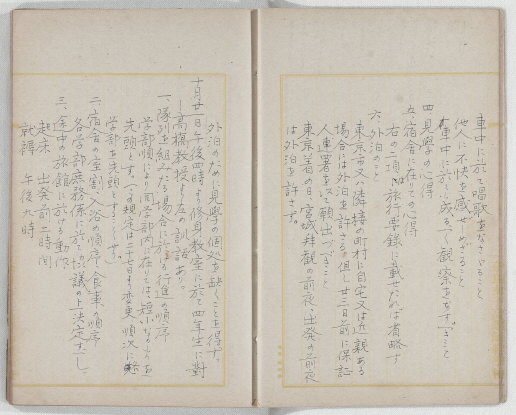 車中に於て唱歌をなさゞること
他人に不快を感ぜしめざること
車中に於て成るべく観察をなすべきこと
四、見学の心得
五、宿舎に在りての心得
右の二項は旅行要録に載せたれば省略す
六、外泊のこと
東京市又は隣接の町村に自宅又は近親ある
場合には外泊を許さる。但し廿三日前に保証
人連署を以て願出づべきこと
東京着の日、宮城拝観の前夜、出発の前夜
は外泊を許さず。
外泊のため見学の個処を缺くことを得ず。
十月廿一日午後四時より修身教室に於て四年生に対
し高橋教授より左の訓話あり。
一、隊列を組みたる場合に於ける行進の順序
学部順により同学部内に在りては、短小なるものを
先頭とす。(この規定は二十七日より変更、順次に
学部を先頭とすることゝせり)
二、宿舎の室割、入浴の順序、食事の順序
各学部庶務係に於て協議の上決定すべし。
三、途中の旅館に於ける動作
起床　出発前二時間
就褥　午後九時